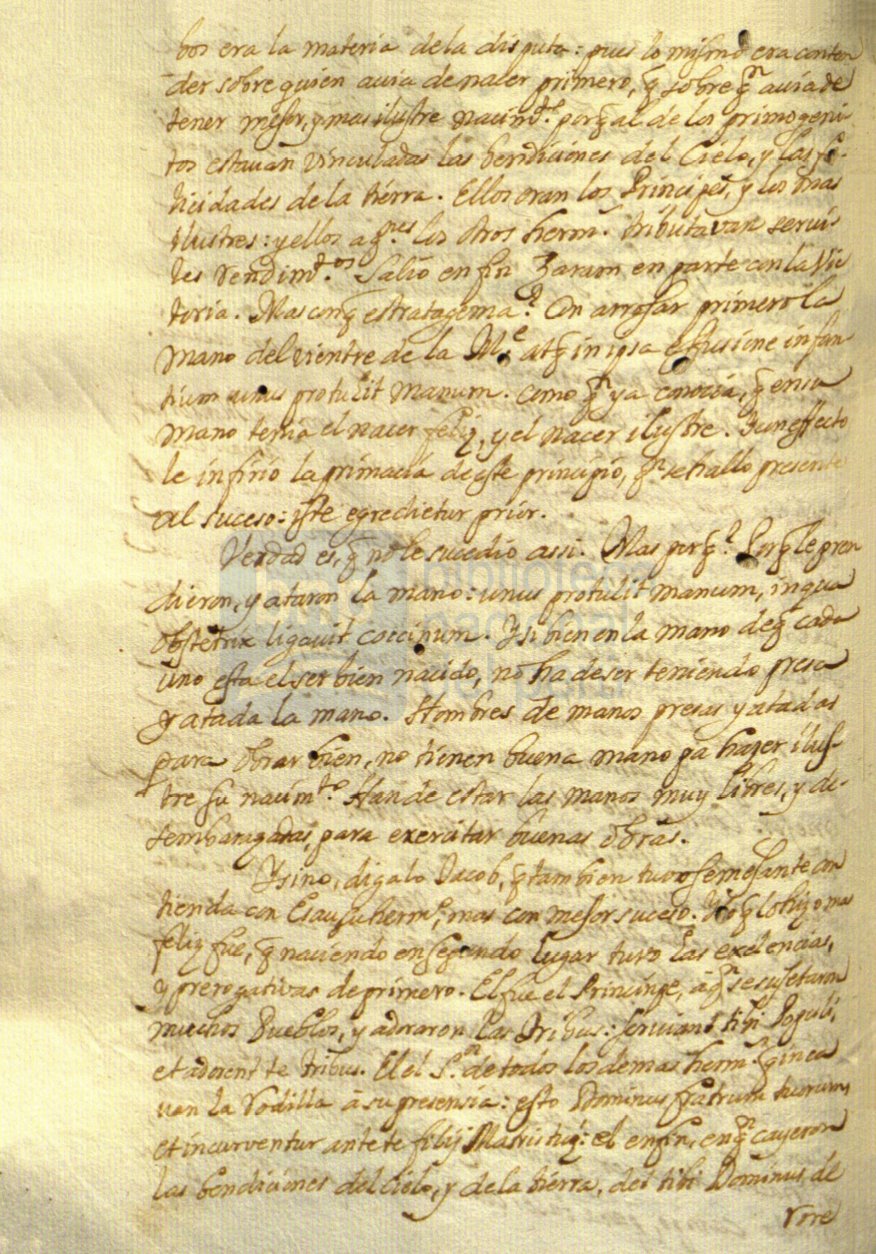 bos era la materia dela disputa: pues lo mismo era conten
der sobre quien avia de nacer primero, q̃ sobre qn avia de
tener mejor, y mas ilustre nacimto. porq̃ al de los primogeni
tos estavan vinculadas las bendiciones del Cielo, y las fe-
licidades de la tierra. Ellos eran los Principes, y los mas
ilustres: y ellos a qnes los otros hermos. tributavan servi
les rendimtos. Salio en fin Zaram en parte con la Vic
toria. Mas con q̃ estratagema? Con arrojar primero la
mano del vientre de la Me. atq̃ in ipsa efusione infan
tium unus protulit manum. como qn ya conocia, q̃ en su
mano tenia el nacer feliz, y el nacer ilustre. Y con effecto
le infirio la primacia de este principio, qn se hallo presente
al suceso: iste egredietur prior.
Verdad es, q̃ no le sucedio assi. Mas porq̃? Porq̃ le pren
dieron, y ataron la mano: unus protulit manum, in qua
obstetrix ligavit coccinum. Y si bien en la mano de q̃ cada
uno esta el ser bien nacido, no ha de ser teniendo presa
y atada la mano. Hombres de manos presas y atadas
para obrar bien, no tienen buena mano pa hazer ilus-
tre su nacimto. Han de estar las manos muy libres, y de-
sembarazadas, para exercitar buenas obras.
Y sino, digalo Jacob, q̃ tambien tuvo semejante con
tienda con Esau su hermo, mas con mejor suceso. Lo q̃ lo hizo mas
feliz fue, q̃ naciendo en segundo lugar tuvo las exelencias,
y prerogativas de primero. El fue el Principe, à qn se sujetaron
muchos Pueblos, y adoraron las tribus: serviant tibi Populi,
et adorent te tribus. El el Sr. de todos los demas hermos q̃ inca
van la rodilla à su presensia: esto Dominus fratrum tuorum,
et incurventur ante te filij Matris tuę: el en fin, en qn cayeron
las bendiciones del Cielo, y de la tierra. det tibi Dominus de
rore
biblioteca
nacional
del perú